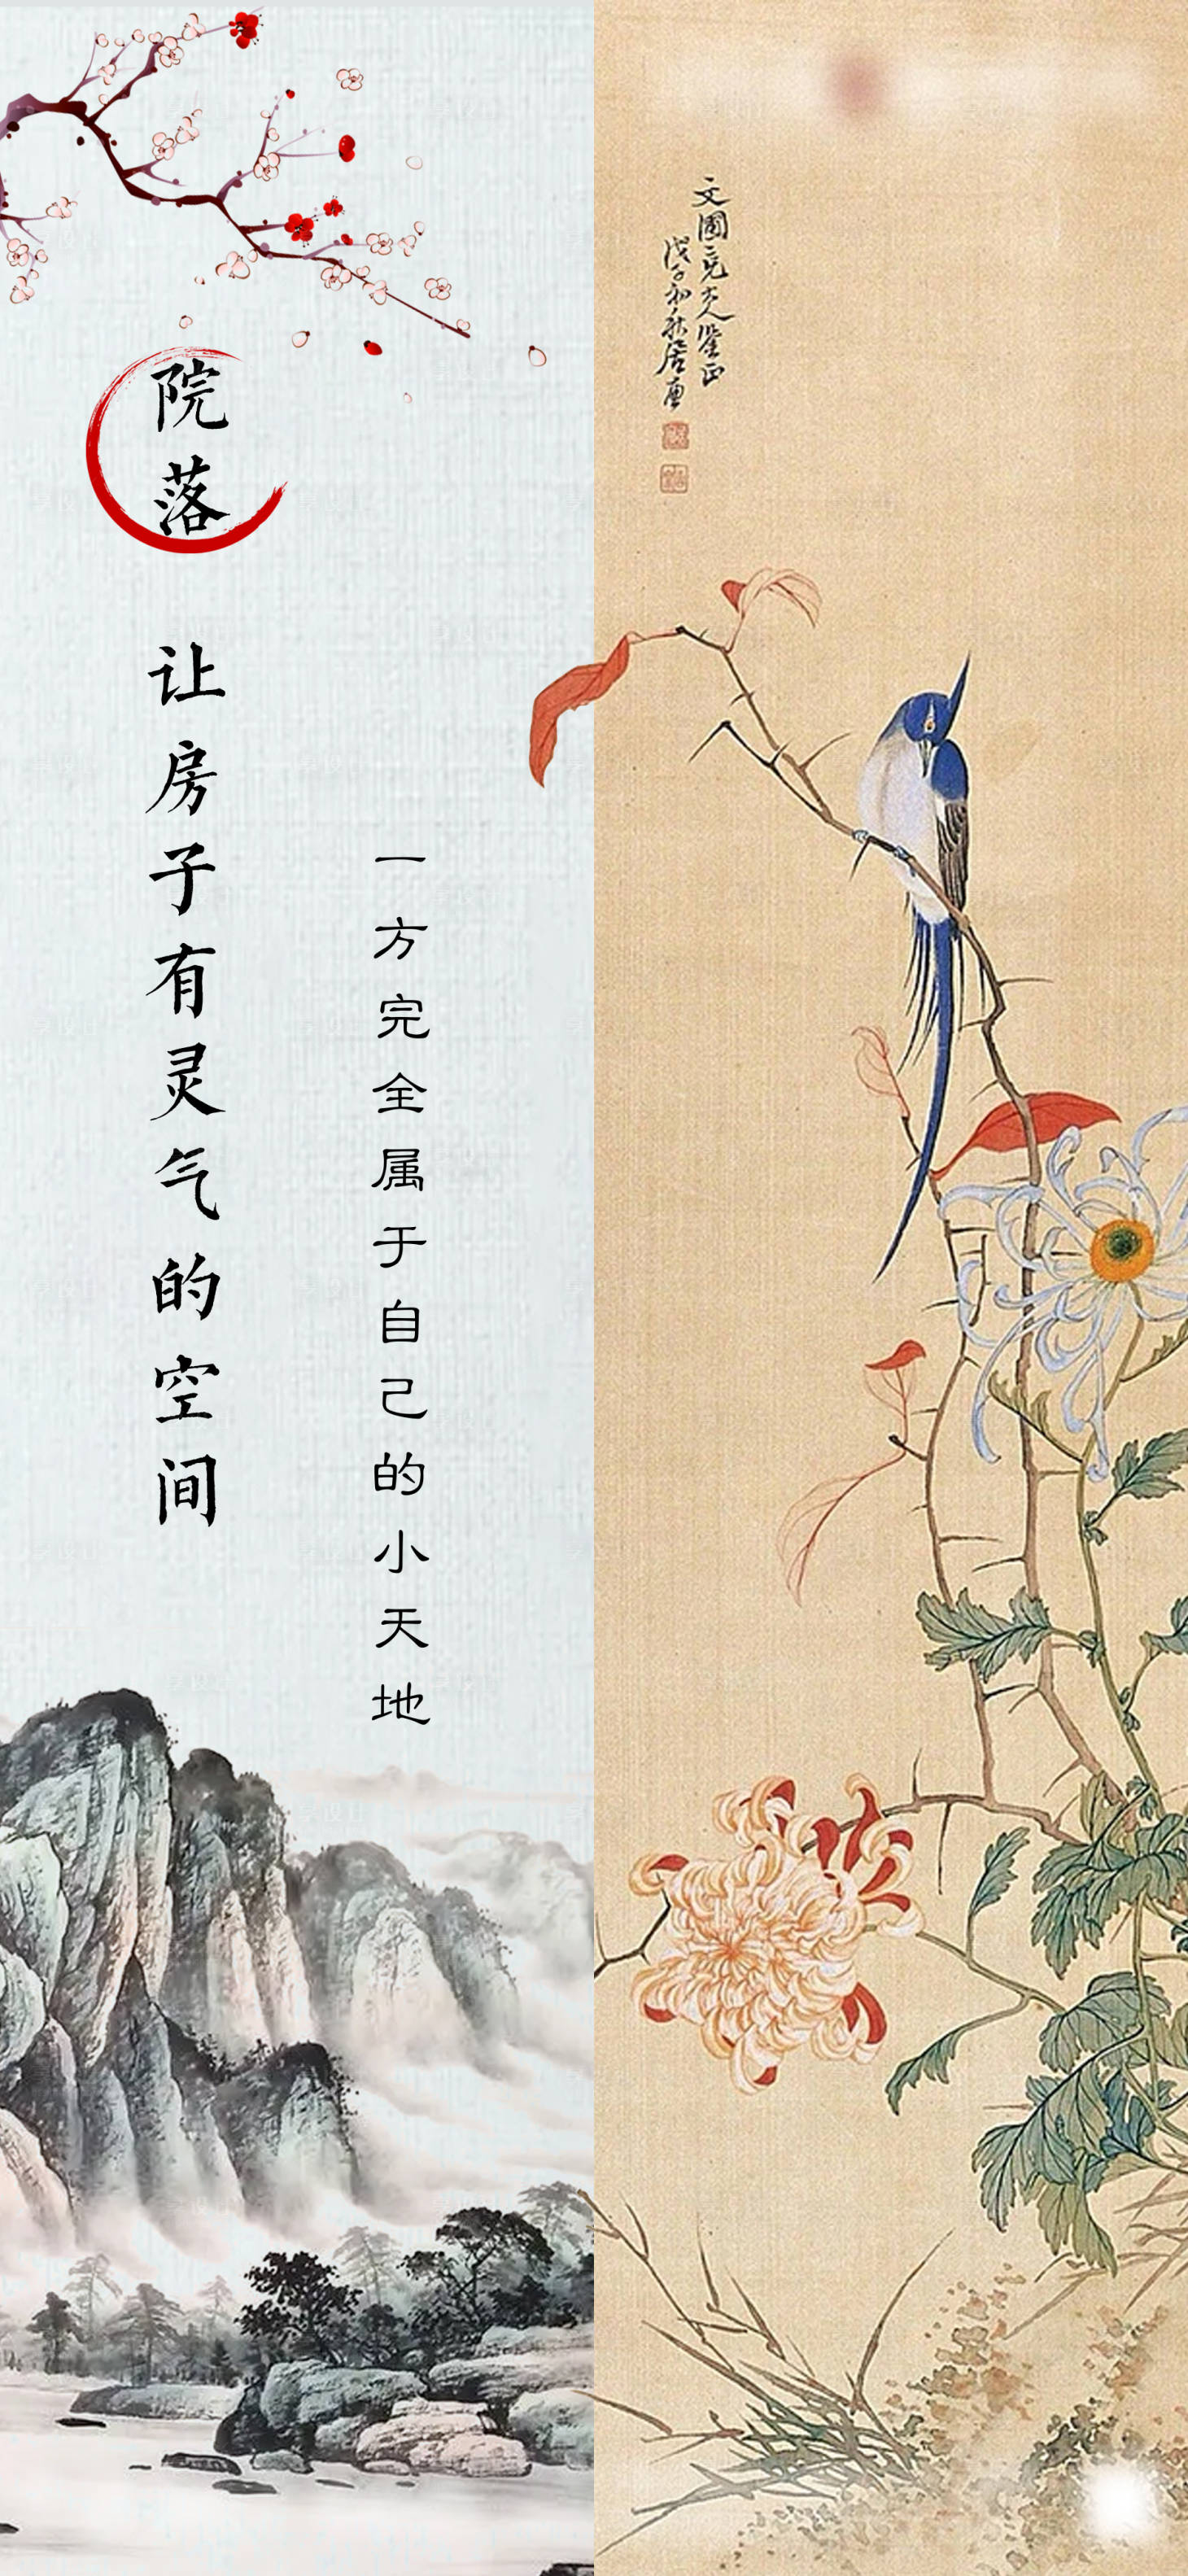 院落
让房子有灵气的空间
一方完全属于自己的小天地
文圃宪大人鉴正
戊子初秋居廉